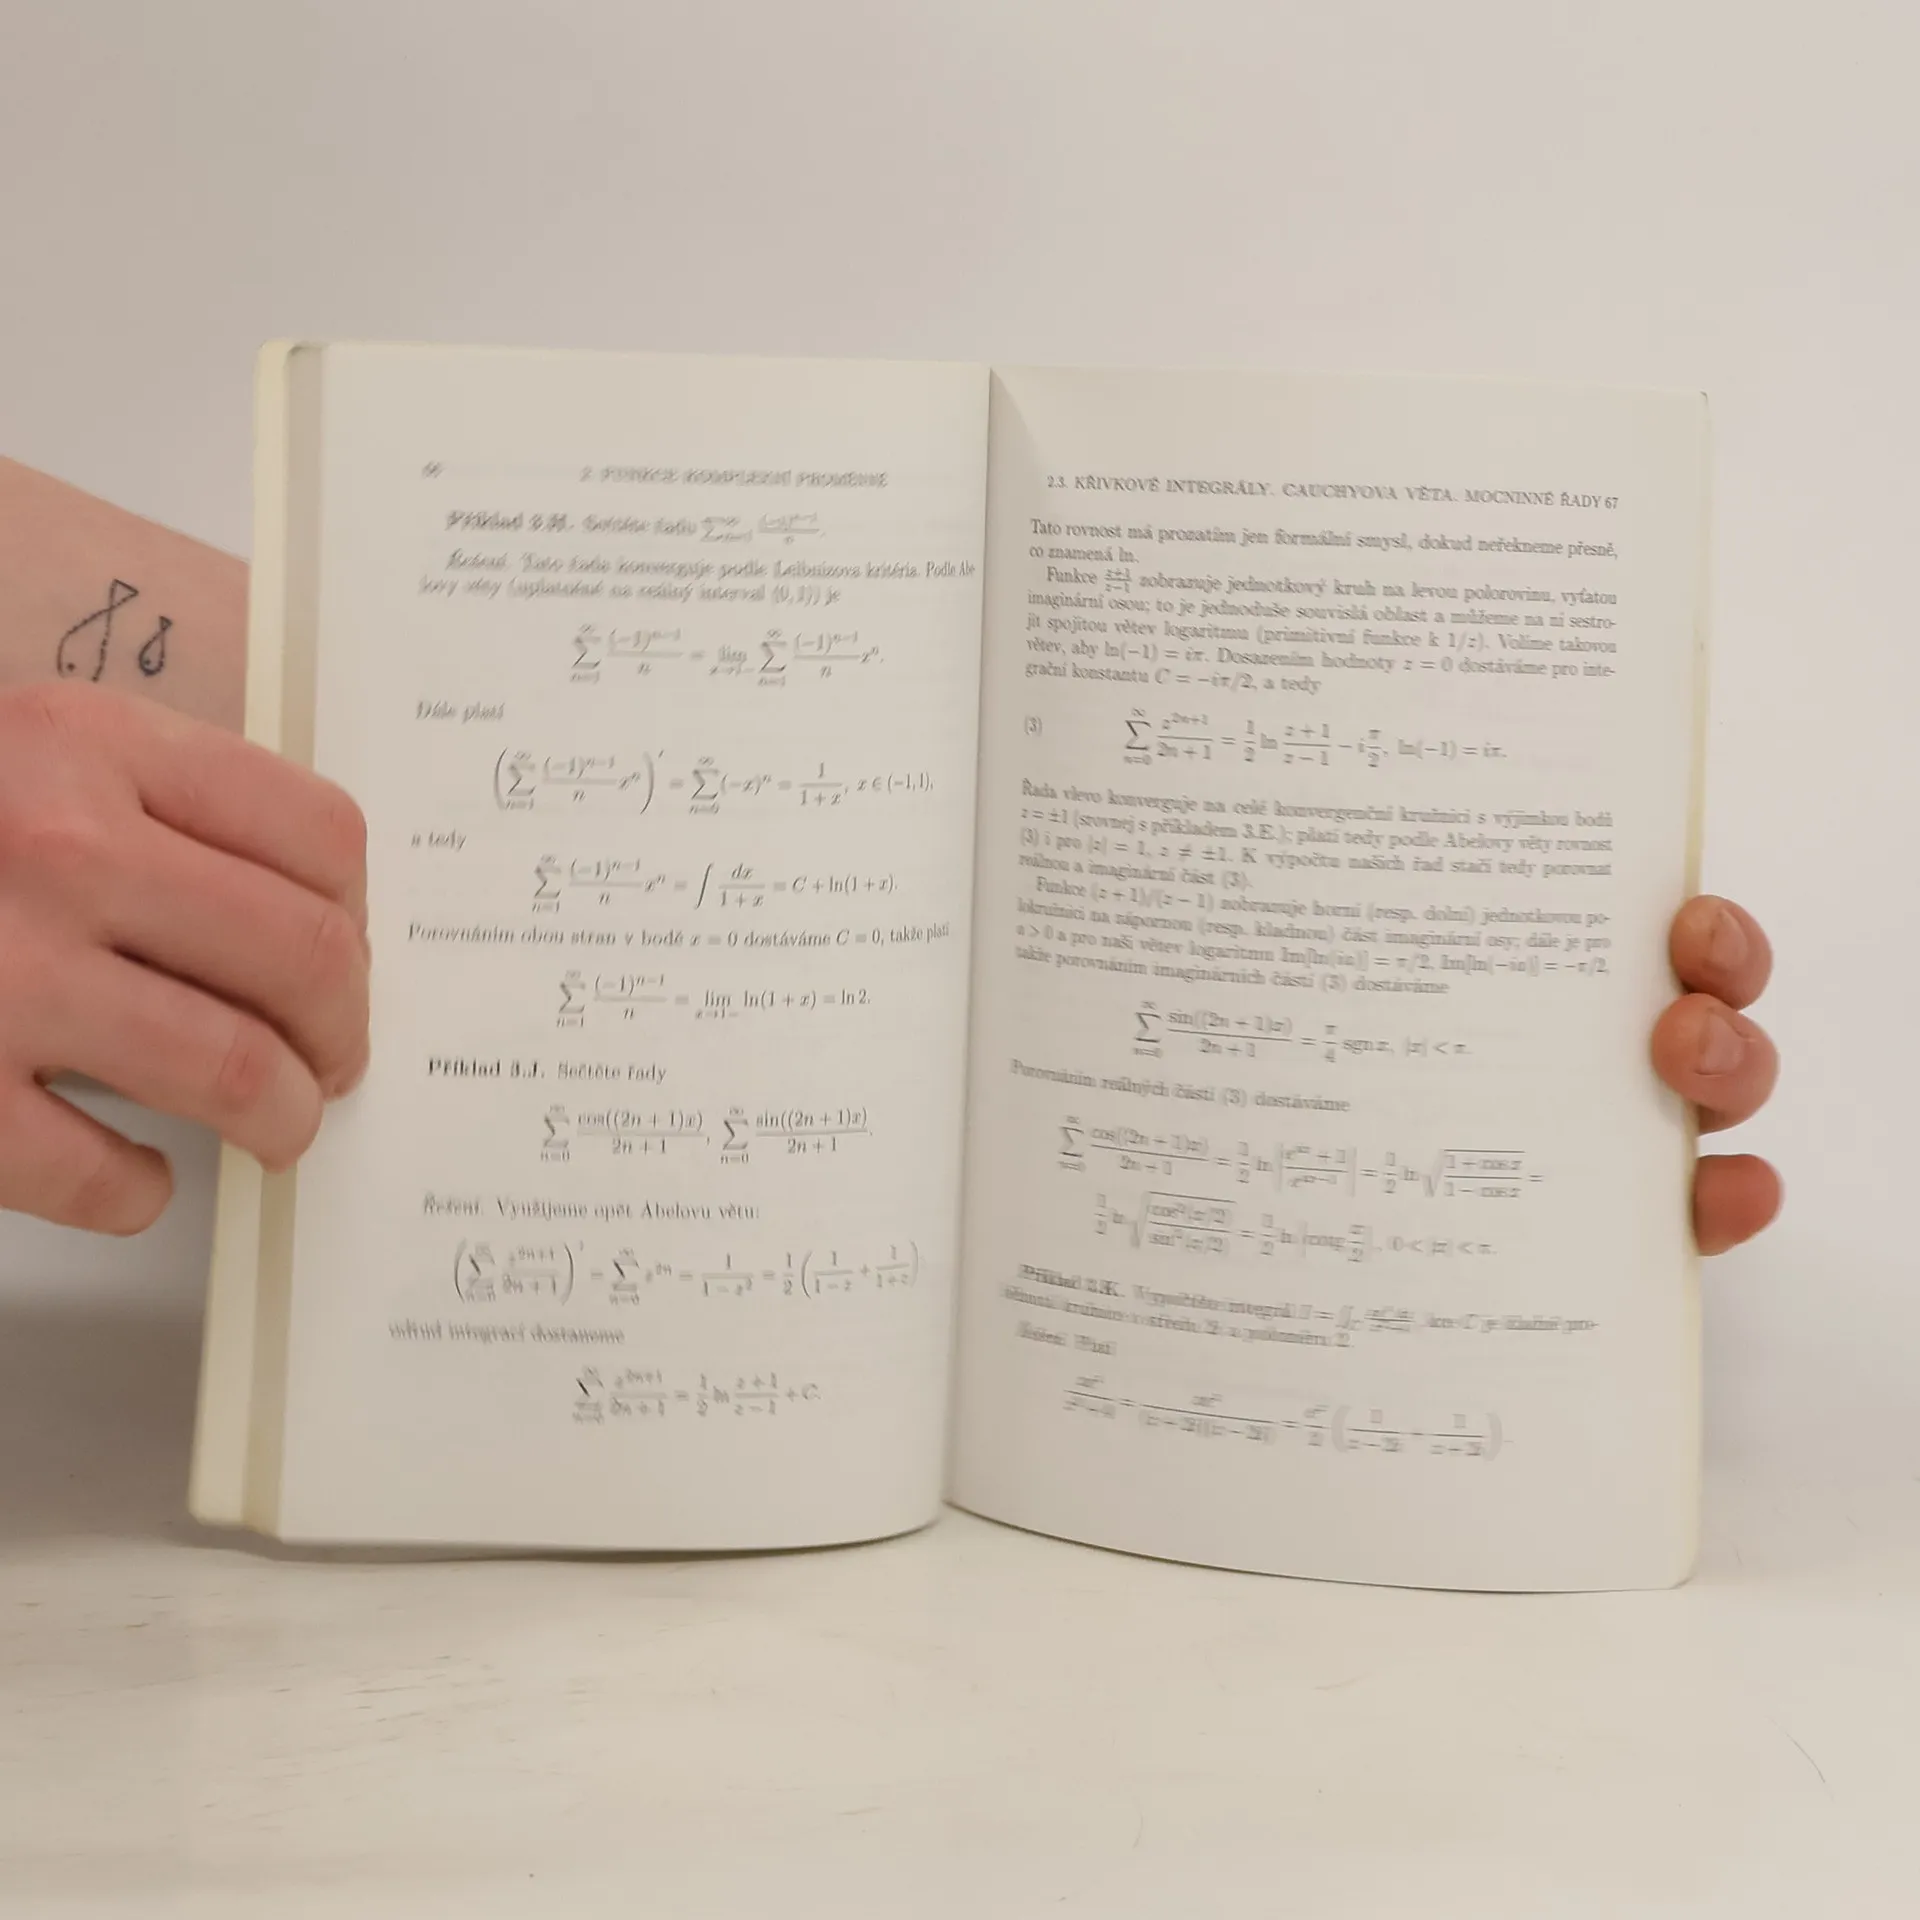 66 2. FUNKCE KOMPLEXNÍ PROMĚNNÉ
Příklad Sečtěte řadu \sum_{n=1}^{\infty} \frac{(-1)^{n-1}}{n}.
Řešení. Tato řada konverguje podle Leibnizova kritéria. Podle Abe
lovy věty (uplatněné na reálný interval (0,1)) je
\sum_{n=1}^{\infty} \frac{(-1)^{n-1}}{n} = \lim_{x \to 1-} \sum_{n=1}^{\infty} \frac{(-1)^{n-1}}{n} x^n.
Dále platí
\left( \sum_{n=1}^{\infty} \frac{(-1)^{n-1}}{n} x^n \right)' = \sum_{n=0}^{\infty} (-x)^n = \frac{1}{1+x}, x \in (-1,1),
a tedy
\sum_{n=1}^{\infty} \frac{(-1)^{n-1}}{n} x^n = \int \frac{dx}{1+x} = C + \ln(1+x).
Porovnáním obou stran v bodě x = 0 dostáváme C = 0, takže platí
\sum_{n=1}^{\infty} \frac{(-1)^{n-1}}{n} = \lim_{x \to 1-} \ln(1+x) = \ln 2.
Příklad 3.J. Sečtěte řady
\sum_{n=0}^{\infty} \frac{\cos((2n+1)x)}{2n+1}, \sum_{n=0}^{\infty} \frac{\sin((2n+1)x)}{2n+1}.
Řešení. Využijeme opět Abelovu větu:
\left( \sum_{n=0}^{\infty} \frac{z^{2n+1}}{2n+1} \right)' = \sum_{n=0}^{\infty} z^{2n} = \frac{1}{1-z^2} = \frac{1}{2} \left( \frac{1}{1-z} + \frac{1}{1+z} \right)
odtud integrací dostaneme
\sum_{n=0}^{\infty} \frac{z^{2n+1}}{2n+1} = \frac{1}{2} \ln \frac{z+1}{z-1} + C.
2.3. KŘIVKOVÉ INTEGRÁLY. CAUCHYOVA VĚTA. MOCNINNÉ ŘADY 67
Tato rovnost má prozatím jen formální smysl, dokud neřekneme přesně,
co znamená ln.
Funkce \frac{z+1}{z-1} zobrazuje jednotkový kruh na levou polorovinu, vyťatou
imaginární osou; to je jednoduše souvislá oblast a můžeme na ní sestro-
jit spojitou větev logaritmu (primitivní funkce k 1/z). Volíme takovou
větev, aby ln(−1) = iπ. Dosazením hodnoty z = 0 dostáváme pro inte-
grační konstantu C = −iπ/2, a tedy
(3) \sum_{n=0}^{\infty} \frac{z^{2n+1}}{2n+1} = \frac{1}{2} \ln \frac{z+1}{z-1} - i\frac{\pi}{2}, \ln(-1) = i\pi.
Řada vlevo konverguje na celé konvergenční kružnici s výjimkou bodů
z = ±1 (srovnej s příkladem 3.E.); platí tedy podle Abelovy věty rovnost
(3) i pro |z| = 1, z ≠ ±1. K výpočtu našich řad stačí tedy porovnat
reálnou a imaginární část (3).
Funkce (z + 1)/(z − 1) zobrazuje horní (resp. dolní) jednotkovou po-
lokružnici na zápornou (resp. kladnou) část imaginární osy; dále je pro
a > 0 a pro naši větev logaritmu Im[ln(ia)] = π/2, Im[ln(−ia)] = −π/2,
takže porovnáním imaginárních částí (3) dostáváme
\sum_{n=0}^{\infty} \frac{\sin((2n+1)x)}{2n+1} = \frac{\pi}{4} \operatorname{sgn} x, |x| < \pi.
Porovnáním reálných částí (3) dostáváme
\sum_{n=0}^{\infty} \frac{\cos((2n+1)x)}{2n+1} = \frac{1}{2} \ln \left| \frac{e^{ix}+1}{e^{ix}-1} \right| = \frac{1}{2} \ln \sqrt{\frac{1+\cos x}{1-\cos x}} =
\frac{1}{2} \ln \sqrt{\frac{\cos^2(x/2)}{\sin^2(x/2)}} = \frac{1}{2} \ln \left| \operatorname{cotg} \frac{x}{2} \right|, 0 < |x| < \pi.
Příklad 3.K. Vypočtěte integrál
Řešení. Platí